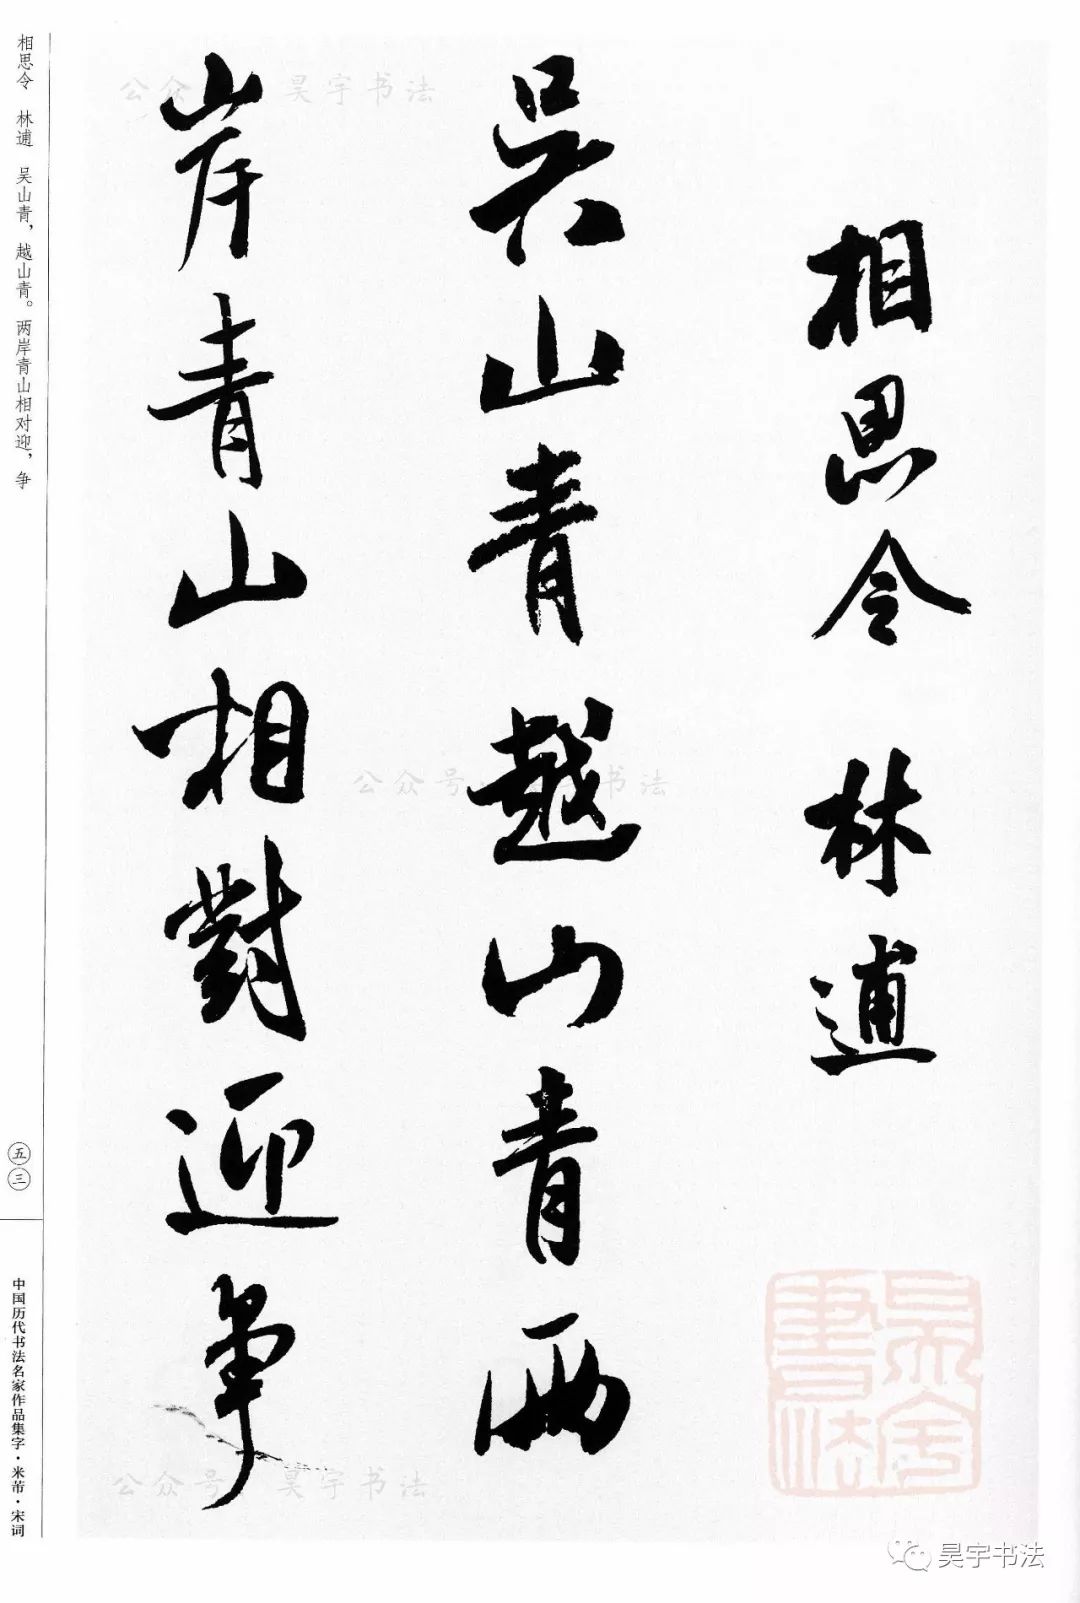 相思令 林逋
吳山青越山青兩
岸青山相對迎争
相思令 林逋 吴山青，越山青。两岸青山相对迎，争
五三
中国历代书法名家作品集字·米芾·宋词
公众 昊宇书法
公众号 书法
公众号 昊宇书法
昊宇書法
昊宇书法